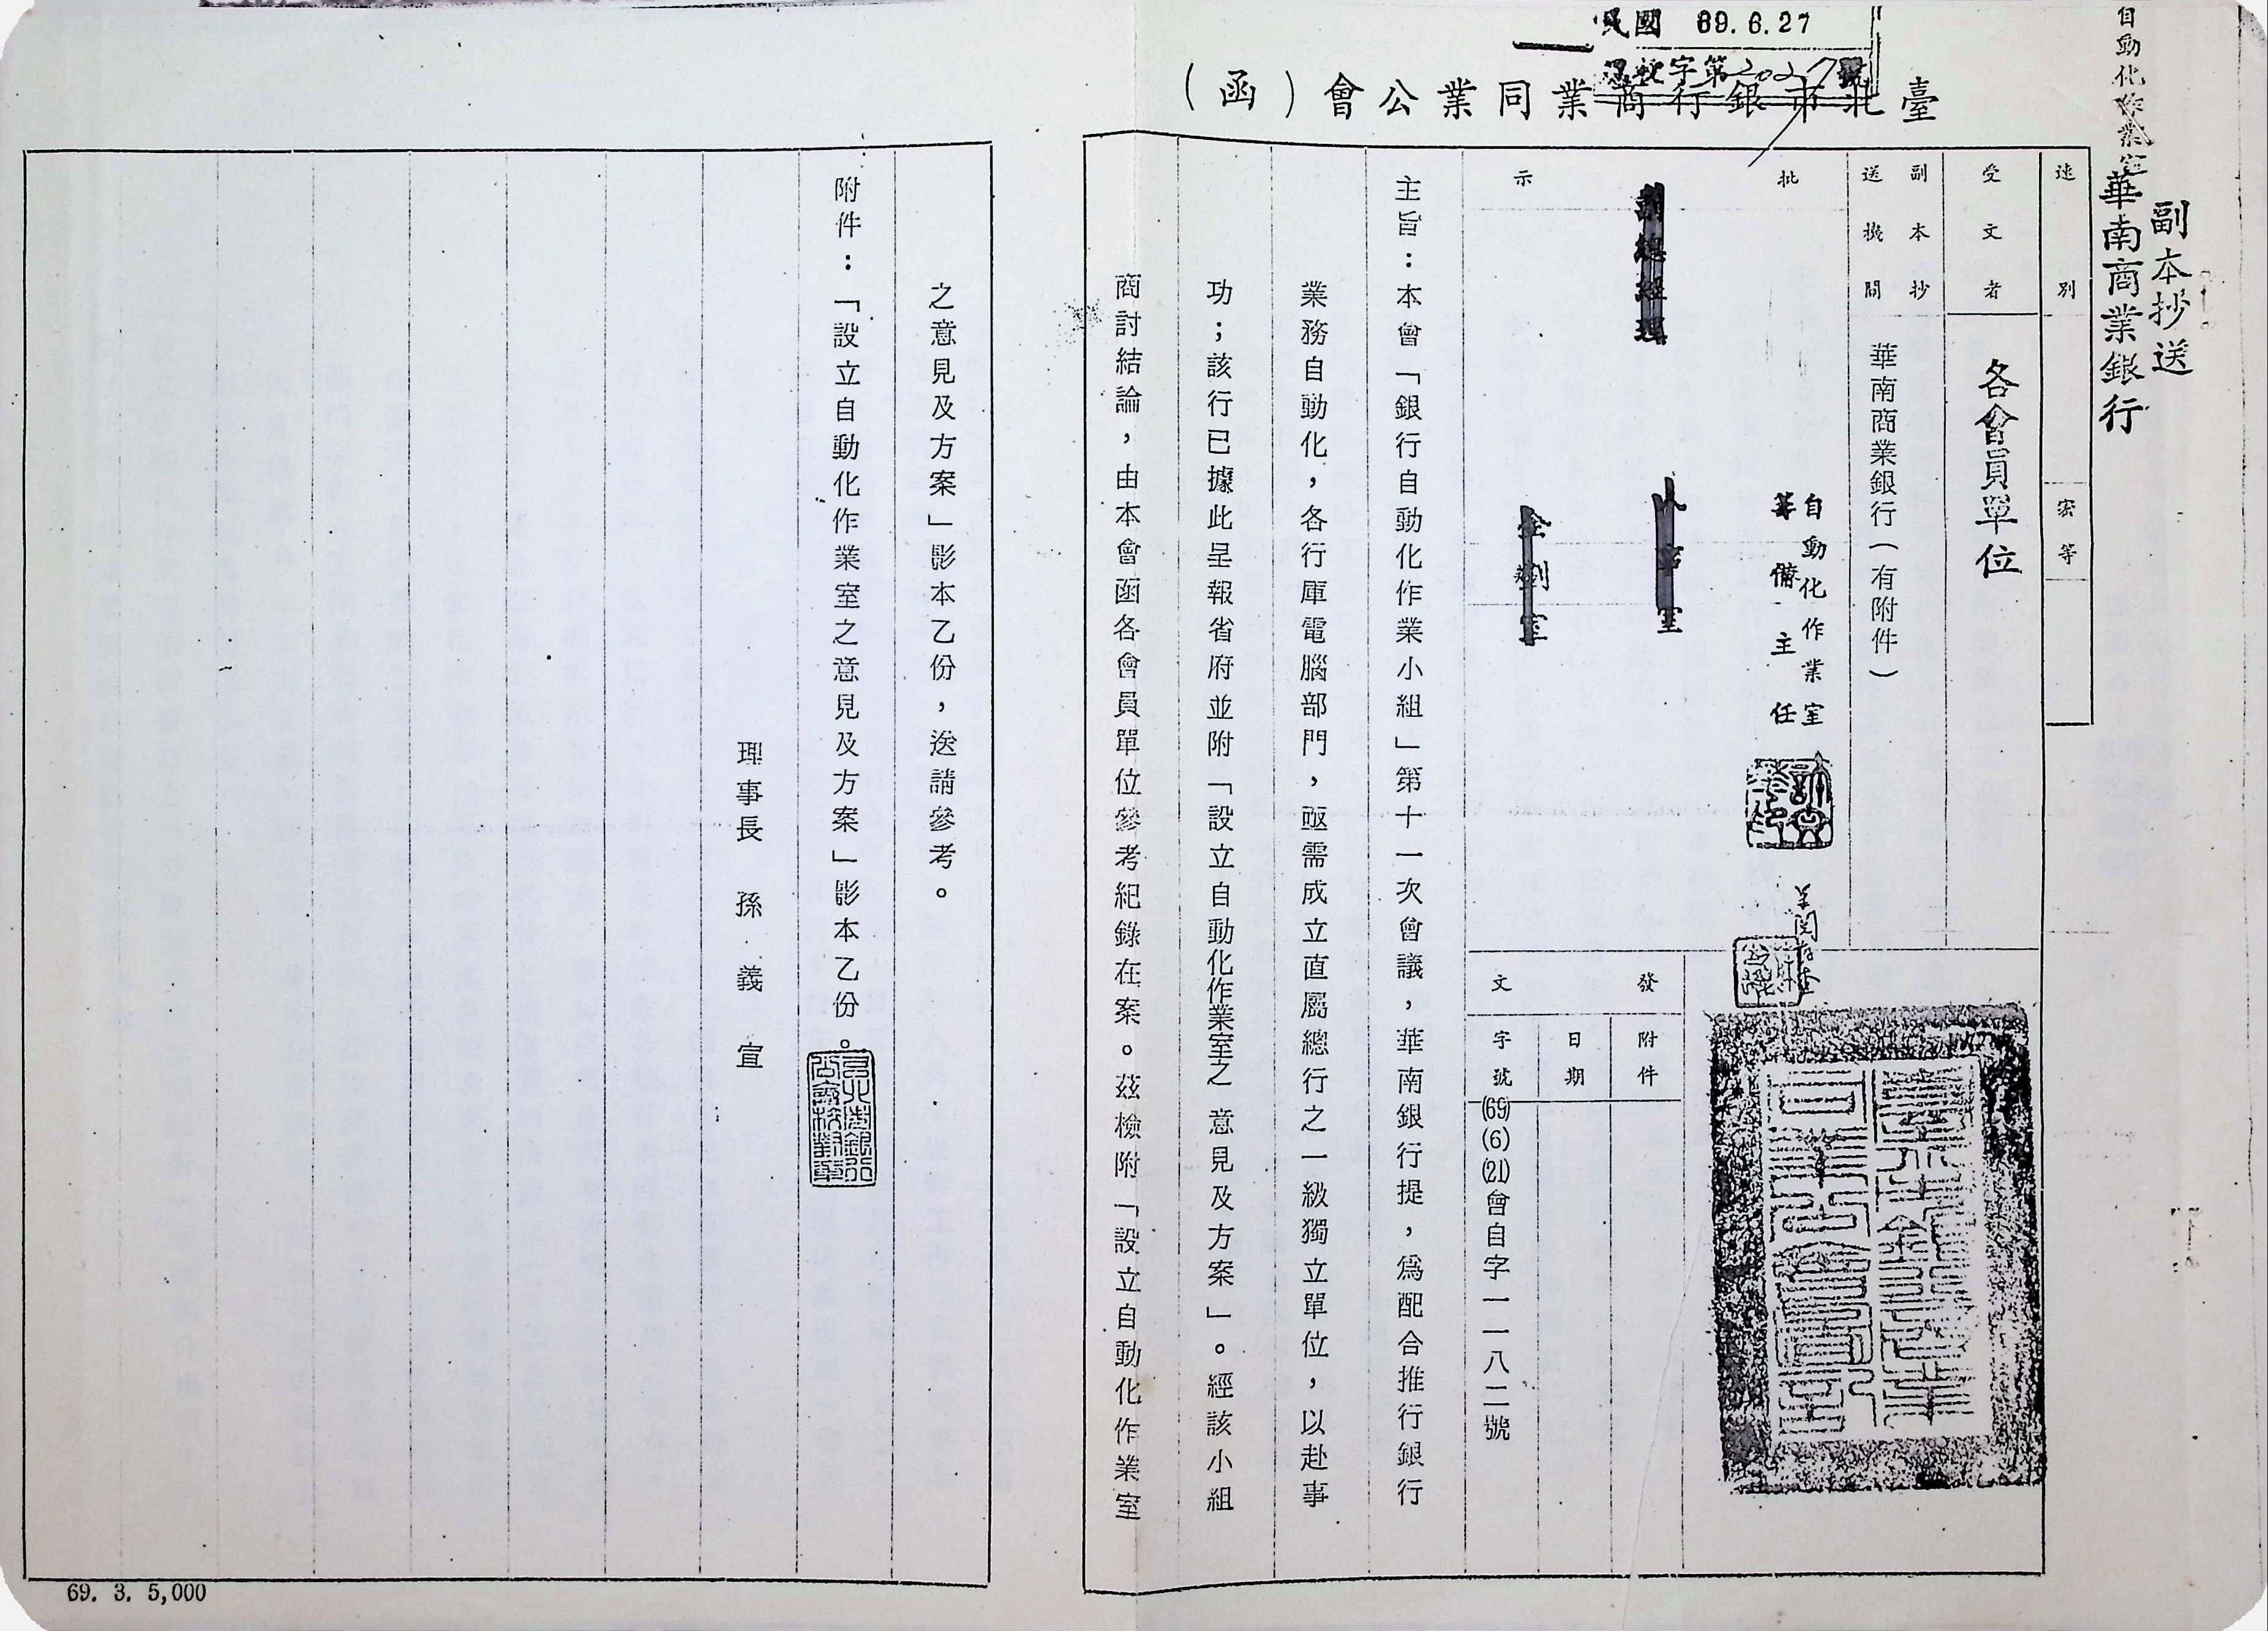 自動化作業室
副本抄送
華南商業銀行
民國 69.6.27
臺北市銀行商業同業公會(函)
速別
密等
受文者
各會員單位
副本抄
送機關
華南商業銀行(有附件)
批示
自動化作業室
籌備主任
副總經理
企劃室
發文
附件
日期
字號
(69)(6)(21)會自字一一八二號
主旨:本會「銀行自動化作業小組」第十一次會議,華南銀行提,爲配合推行銀行
業務自動化,各行庫電腦部門,亟需成立直屬總行之一級獨立單位,以赴事
功;該行已據此呈報省府並附「設立自動化作業室之意見及方案」。經該小組
商討結論,由本會函各會員單位參考紀錄在案。茲檢附「設立自動化作業室
之意見及方案」影本乙份,送請參考。
附件:「設立自動化作業室之意見及方案」影本乙份。
理事長 孫義宣
69. 3. 5,000